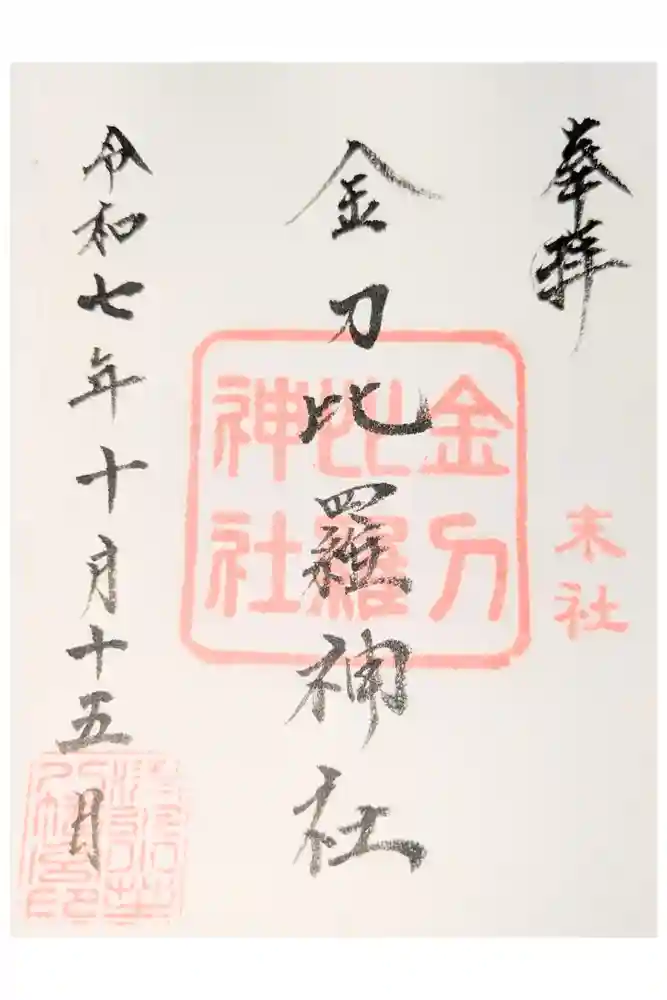 奉拝
末社
金刀比羅神社
金刀
比羅
神社
令和七年十月十五日